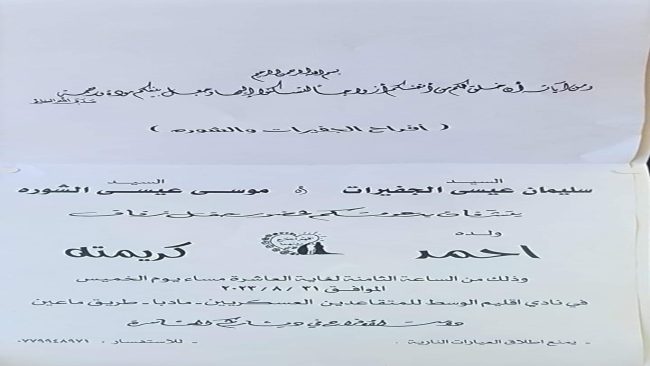 بسم الله الرحمن الرحيم
ومن آياته أن خلق لكم من أنفسكم أزواجا لتسكنوا إليها وجعل بينكم مودة ورحمة
صدق الله العظيم
( أفراح الجفيرات والشوره )
السيد السيد
سليمان عيسى الجفيرات و موسى عيسى الشوره
يتشرفان بدعوتكم لحضور حفل زفاف
ولده
احمد كريمته
وذلك من الساعة الثامنة لغاية العاشرة مساء يوم الخميس
الموافق ٣١ / ٨ / ٢٠٢٣
في نادي اقليم الوسط للمتقاعدين العسكريين - مادبا - طريق ماعين
- يمنع اطلاق العيارات النارية . - للاستفسار : ٠٧٧٩٩٤٨٩٧١